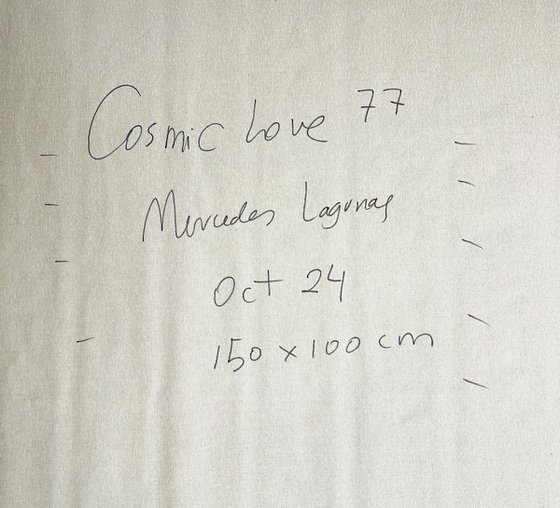 Cosmic Love 77
Mercedes Lagunas
Oct 24
150 x 100 cm